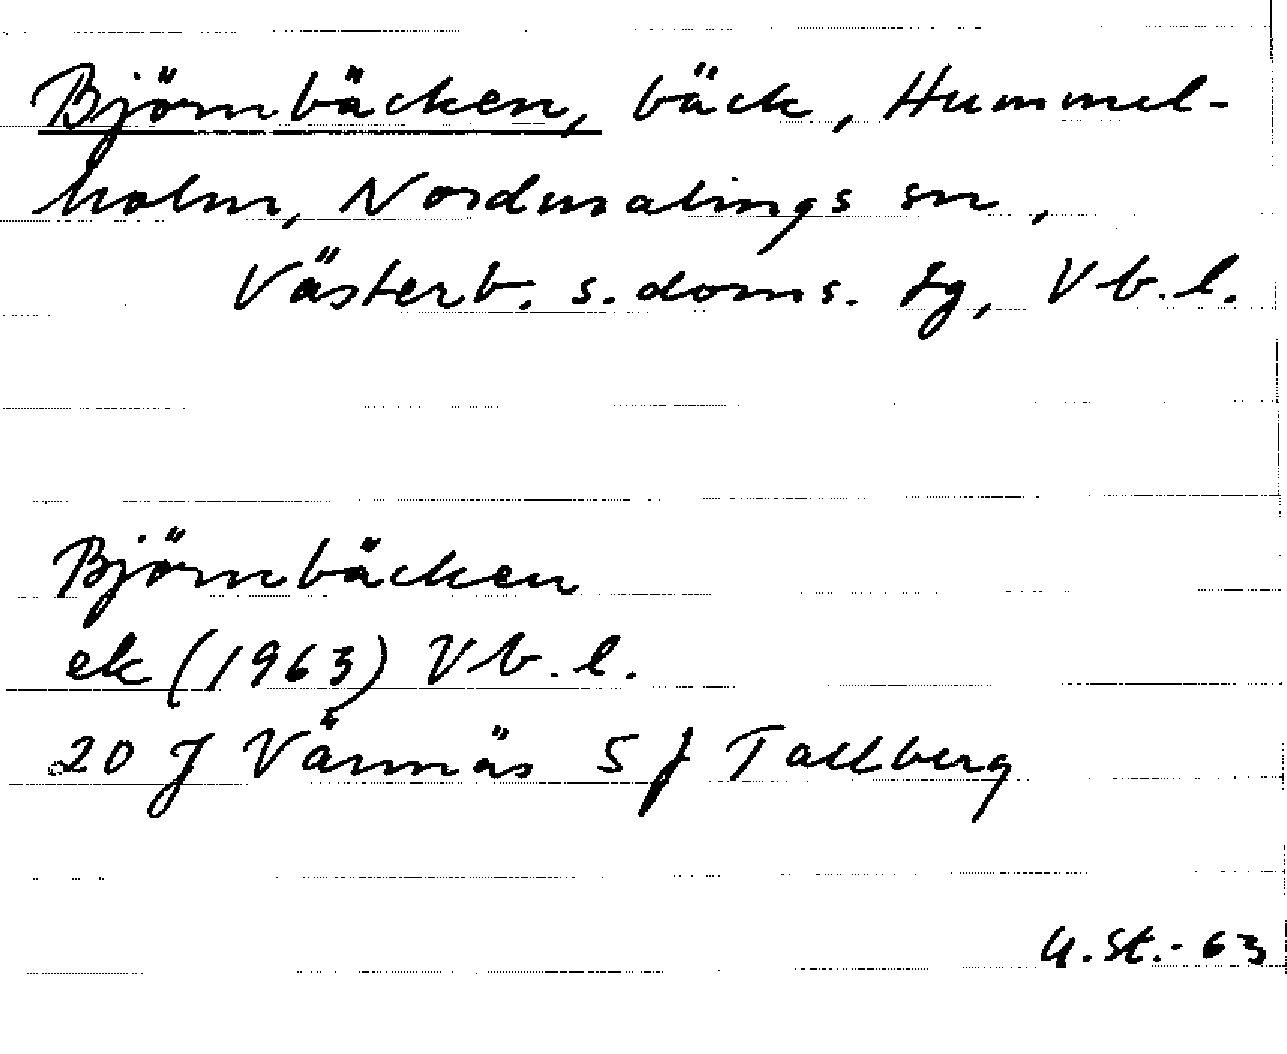 Björnbäcken, bäck, Hummel-
holm, Nordmalings sn,
Västerb. s. doms. tg, Vb. l.
Björnbäcken
ek (1963) Vb. l.
20 J Vännäs 5 f Tallberg
G. St. - 63